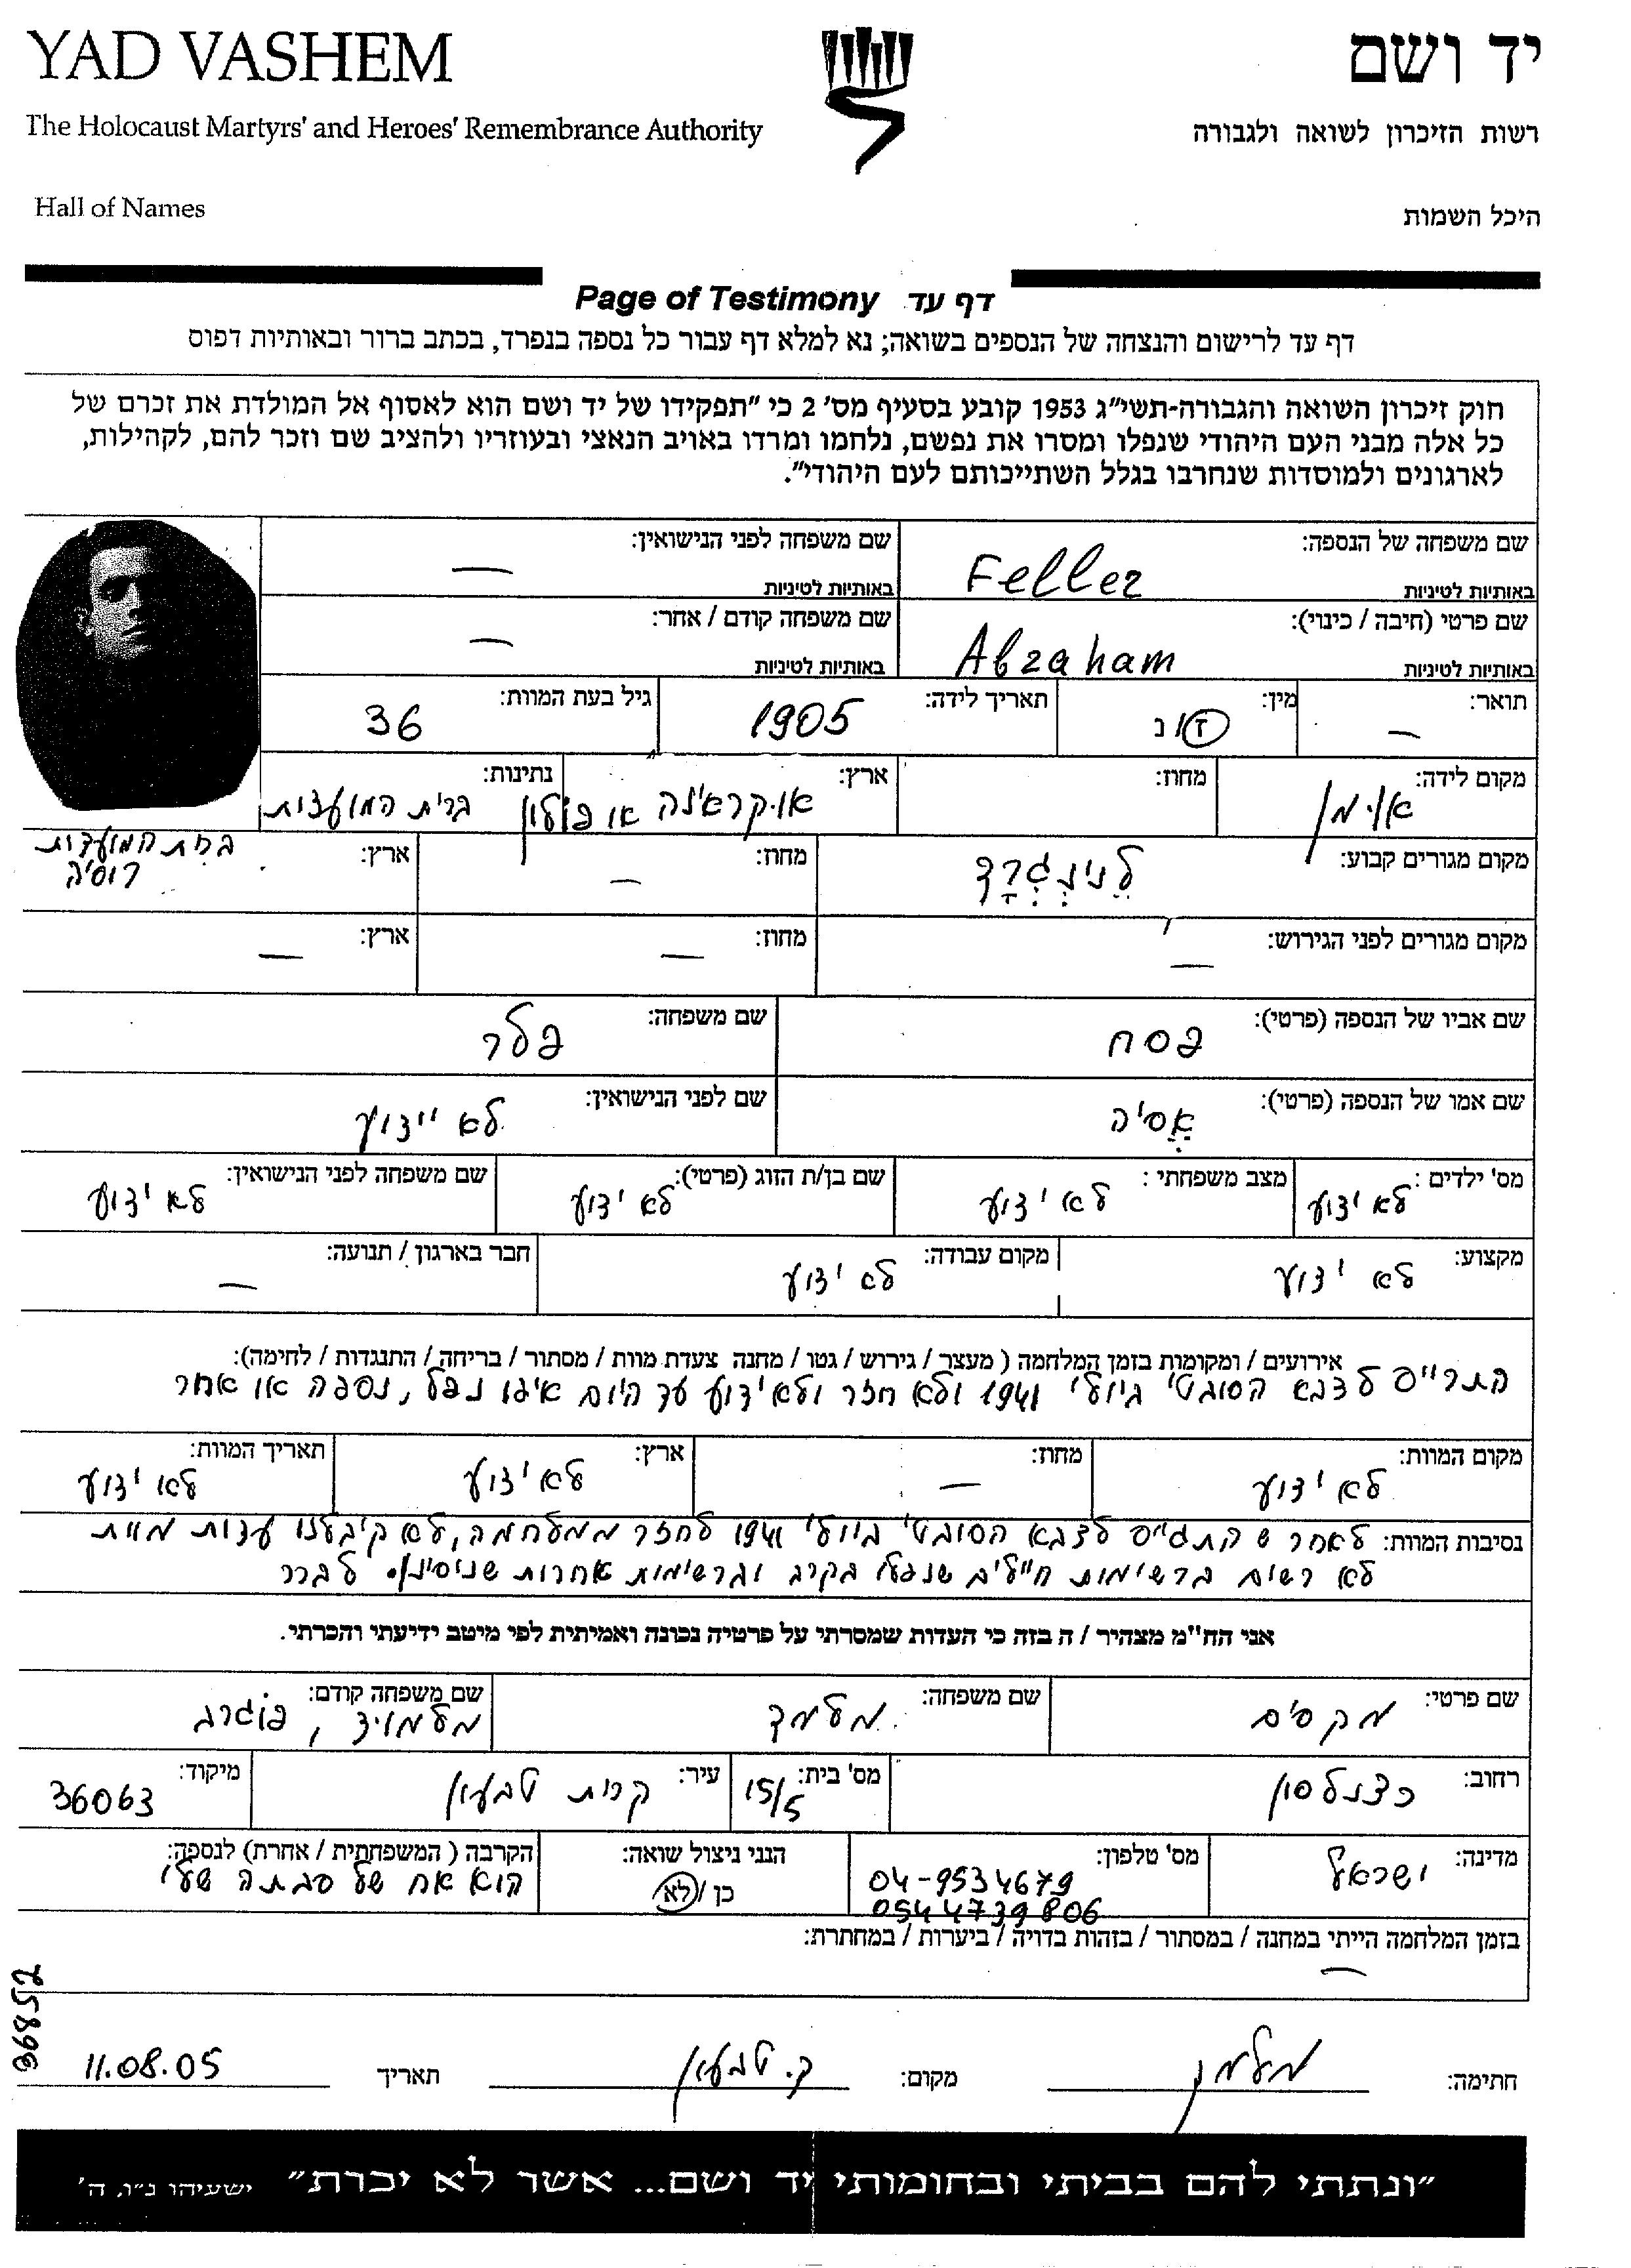 YAD VASHEM
יד ושם
The Holocaust Martyrs' and Heroes' Remembrance Authority
רשות הזיכרון לשואה ולגבורה
Hall of Names
היכל השמות
Page of Testimony דף עד
דף עד לרישום והנצחה של הנספים בשואה; נא למלא דף עבור כל נספה בנפרד, בכתב ברור ובאותיות דפוס
חוק זיכרון השואה והגבורה-תשי"ג 1953 קובע בסעיף מס' 2 כי "תפקידו של יד ושם הוא לאסוף אל המולדת את זכרם של
כל אלה מבני העם היהודי שנפלו ומסרו את נפשם, נלחמו ומרדו באויב הנאצי ובעוזריו ולהציב שם וזכר להם, לקהילות,
לארגונים ולמוסדות שנחרבו בגלל השתייכותם לעם היהודי".
שם משפחה של הנספה: שם משפחה לפני הנישואין:
Feller —
באותיות לטיניות באותיות לטיניות
שם פרטי (חיבה / כינוי): שם משפחה קודם / אחר:
Abraham —
באותיות לטיניות באותיות לטיניות
תואר: — מין: ז/נ תאריך לידה: 1905 גיל בעת המוות: 36
מקום לידה: מחוז: ארץ: אוקראינה או פולין נתינות: ברית המועצות
מקום מגורים קבוע: לנינגרד מחוז: — ארץ: ברית המועצות
רוסיה
מקום מגורים לפני הגירוש: — מחוז: — ארץ: —
שם אביו של הנספה (פרטי): פסח שם משפחה: פלר
שם אמו של הנספה (פרטי): אסיה שם לפני הנישואין: לא ידוע
מס' ילדים: לא ידוע מצב משפחתי: לא ידוע שם בן/ת הזוג (פרטי): לא ידוע שם משפחה לפני הנישואין: לא ידוע
מקצוע: לא ידוע מקום עבודה: לא ידוע חבר בארגון / תנועה: —
אירועים / ומקומות בזמן המלחמה ( מעצר / גירוש / גטו / מחנה צעדת מוות / מסתור / בריחה / התנגדות / לחימה):
לצבא הסובטי ביולי 1941 ולא חזר ולא ידוע עד היום איפו נפל, נספה או אחר
מקום המוות: לא ידוע מחוז: — ארץ: לא ידוע תאריך המוות: לא ידוע
נסיבות המוות: לאחר ש התגייס לצבא הסובטי ביולי 1941 לחזר ממלחמה, לא קיבלנו עדות מוות
לא רשום ברשימות חיילים שנפלו בקרב וברשימות אחרות שניסינו לברר
אני הח"מ מצהיר / ה בזה כי העדות שמסרתי על פרטיה נכונה ואמיתית לפי מיטב ידיעתי והכרתי.
שם פרטי: מקסים שם משפחה: מלמד שם משפחה קודם:
רחוב: כצנלסון מס' בית: 15/5 עיר: קרית טבעון מיקוד: 36063
מדינה: ישראל מס' טלפון: 04-9534679 הנני ניצול שואה: הקרבה ( המשפחתית / אחרת) לנספה:
0544739806 כן / לא הוא אח של סבתה שלי
בזמן המלחמה הייתי במחנה / במסתור / בזהות בדויה / ביערות / במחתרת:
—
36852
חתימה: מקום: ק. טבעון תאריך 11.08.05
"ונתתי להם בביתי ובחומותי יד ושם... אשר לא יכרת" ישעיהו נ"ו, ה'